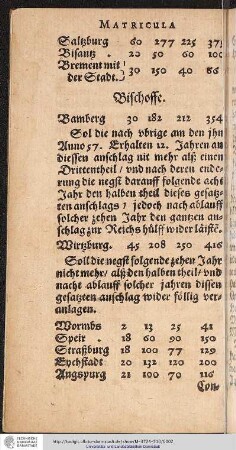 MATRICULA
Saltzburg 60 277 225
Bisantz . 20 50 60 100
Brement mit
der Stadt. 30 150 40 86
Bischoffe.
Bamberg 30 182 212 354
Sol die nach vbrige am den jhn
Anno 57. Erhalten 12. Jahren an
diessen anschlag nit mehr alß einen
Drittentheil / vnd nach deren ende-
rung die negst darauff folgende acht
Jahr den halben theil dieses gesatz-
ten anschlags / jedoch nach ablauff
solcher zehen Jahr den gantzen an-
schlag zur Reichs hülff wider läistē.
Wirtzburg. 45 208 250 416
Soll die negst folgende zehen Jahr
nicht mehr / alß den halben theil / vnd
nacht ablauff solcher jahren dissen
gesatzten anschlag wider föllig ver-
anlagen.
Wormbs 2 13 25 41
Speir . 18 60 90 150
Straßburg 18 100 77 129
Eychstadt 20 132 120 200
Augspurg 21 100 70 116
Con-